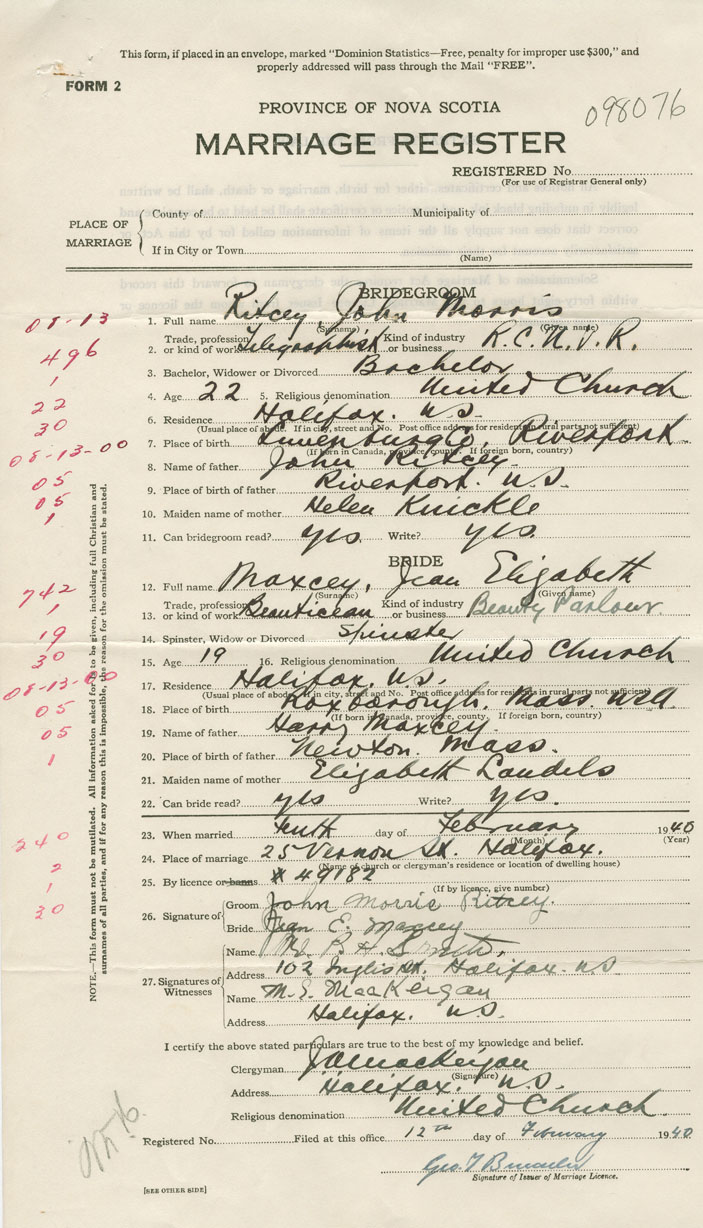 This form, if placed in an envelope, marked "Dominion Statistics—Free, penalty for improper use $300," and
properly addressed will pass through the Mail "FREE".
FORM 2
098076
PROVINCE OF NOVA SCOTIA
MARRIAGE REGISTER
REGISTERED No.
(For use of Registrar General only)
PLACE OF MARRIAGE
County of
Municipality of
If in City or Town
(Name)
BRIDEGROOM
1. Full name Ritcey, John Morris
(Surname) (Given name)
08-13
2. Trade, profession or kind of work Telegraphist Kind of industry or business R.C.N.V.R.
496
3. Bachelor, Widower or Divorced Bachelor
1
4. Age 22 5. Religious denomination United Church
22
30
6. Residence Halifax. N.S.
(Usual place of abode. If in city, street and No. Post office address for residents in rural parts not sufficient)
7. Place of birth Lunenburg Co, Riverport
(If born in Canada, province, county. If foreign born, country)
08-13-00
8. Name of father John Ritcey
05
9. Place of birth of father Riverport. N.S.
05
10. Maiden name of mother Helen Knickle
1
11. Can bridegroom read? yes Write? yes.
BRIDE
12. Full name Maxcey, Jean Elizabeth
(Surname) (Given name)
742
13. Trade, profession or kind of work Beautician Kind of industry or business Beauty Parlour.
1
14. Spinster, Widow or Divorced Spinster
19
15. Age 19 16. Religious denomination United Church
30
17. Residence Halifax. N.S.
(Usual place of abode. If in city, street and No. Post office address for residents in rural parts not sufficient)
08-13-00
18. Place of birth Roxborough, Mass.
(If born in Canada, province, county. If foreign born, country)
05
19. Name of father Harry Maxcey.
05
20. Place of birth of father Newton. Mass.
1
21. Maiden name of mother Elizabeth Landels
22. Can bride read? yes Write? yes.
23. When married tenth day of February 1940
(Month) (Year)
240
24. Place of marriage 25 Vernon St. Halifax.
(Name of church or clergyman's residence or location of dwelling house)
2
25. By licence or banns # 49182
(If by licence, give number)
1
30
26. Signature of
Groom John Morris Ritcey.
Bride Jean E. Maxcey
27. Signatures of Witnesses
Name B. H. Smith,
Address 102 Inglis St. Halifax. N.S.
Name M. E. MacKeigan
Address Halifax. N.S.
NOTE.—This form must not be mutilated. All information asked for is to be given, including full Christian and
surnames of all parties, and if for any reason this is impossible, the reason for the omission must be stated.
I certify the above stated particulars are true to the best of my knowledge and belief.
Clergyman J. A. MacKeigan
(Signature)
Address Halifax. N.S.
Religious denomination United Church.
Registered No. Filed at this office 12th day of February 1940
Geo. T.
Signature of Issuer of Marriage Licence.
[SEE OTHER SIDE]